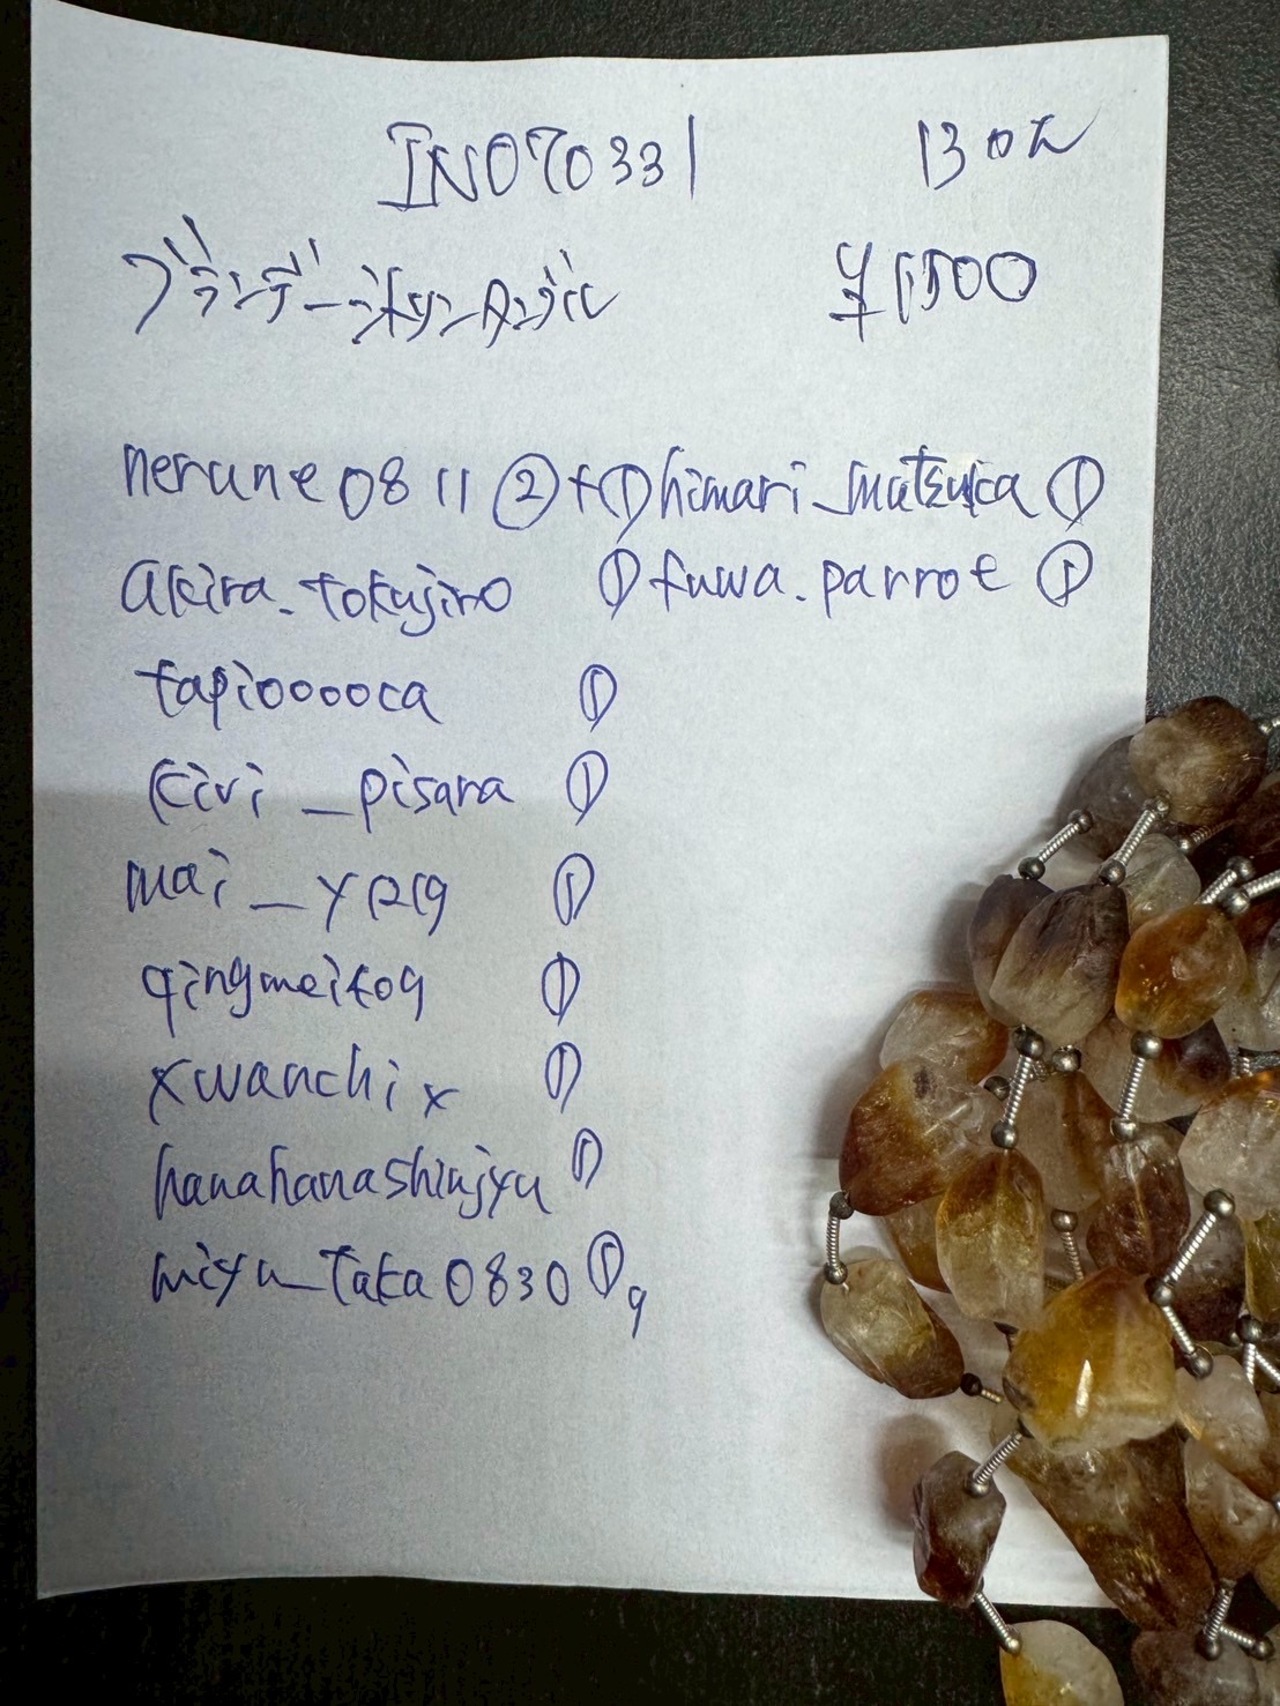 IN070331 130元
ブランデーシトリンタンブル ¥1500
nerune0811 ② + ① himari_matsuka ①
akira.tokujiro ① fuwa.parrot ①
tapiooooca ①
kivi_pisara ①
mai_ ①
qingmeito9 ①
xwanchix ①
hanahanashinjyu ①
miyu_taka0830 ① 9